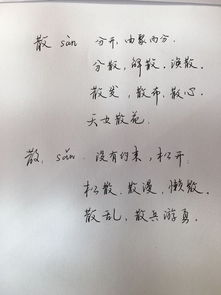 散 sàn 分开,由聚而分.
分散,解散,涣散
散发,散布,散心.
天女散花.
散, sǎn. 没有约束,松开.
松散.散漫,懒散.
散乱,散兵游勇.